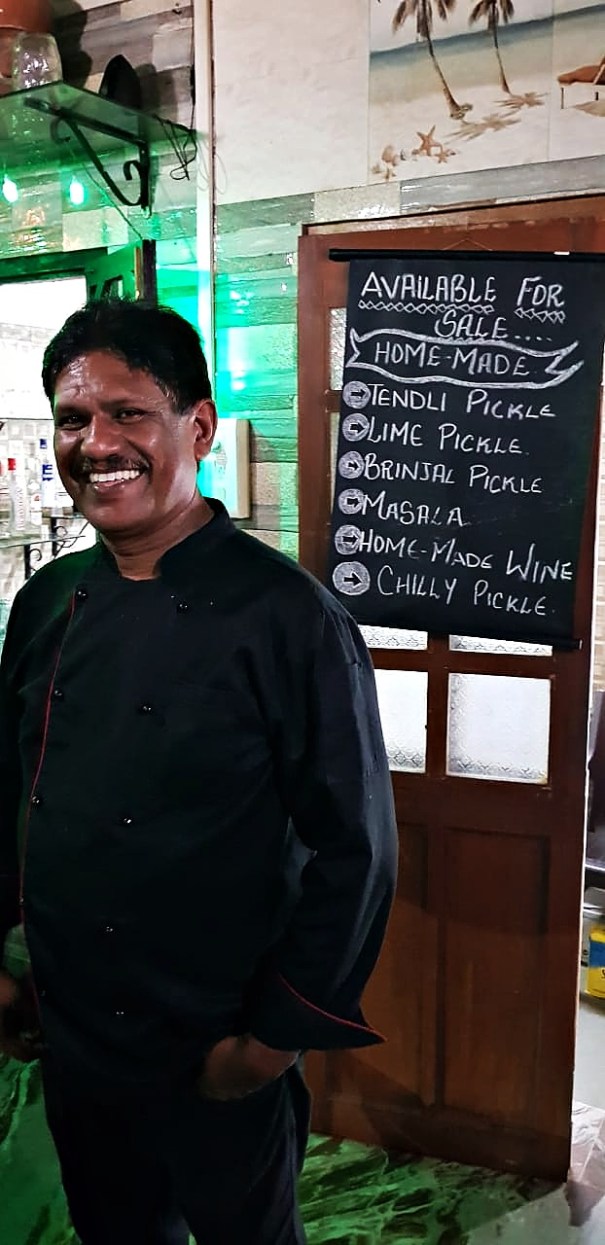 AVAILABLE FOR
SALE....
HOME-MADE
TENDLI PICKLE
LIME PICKLE.
BRINJAL PICKLE
MASALA
HOME-MADE WINE
CHILLY PICKLE.